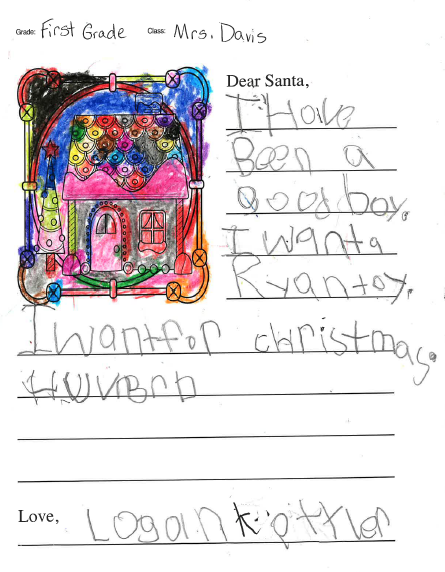 Grade: First Grade Class: Mrs. Davis
Dear Santa,
I Have
Been a
good boy.
I want a
Ryan toy.
I want for christmas.
Love, Logan